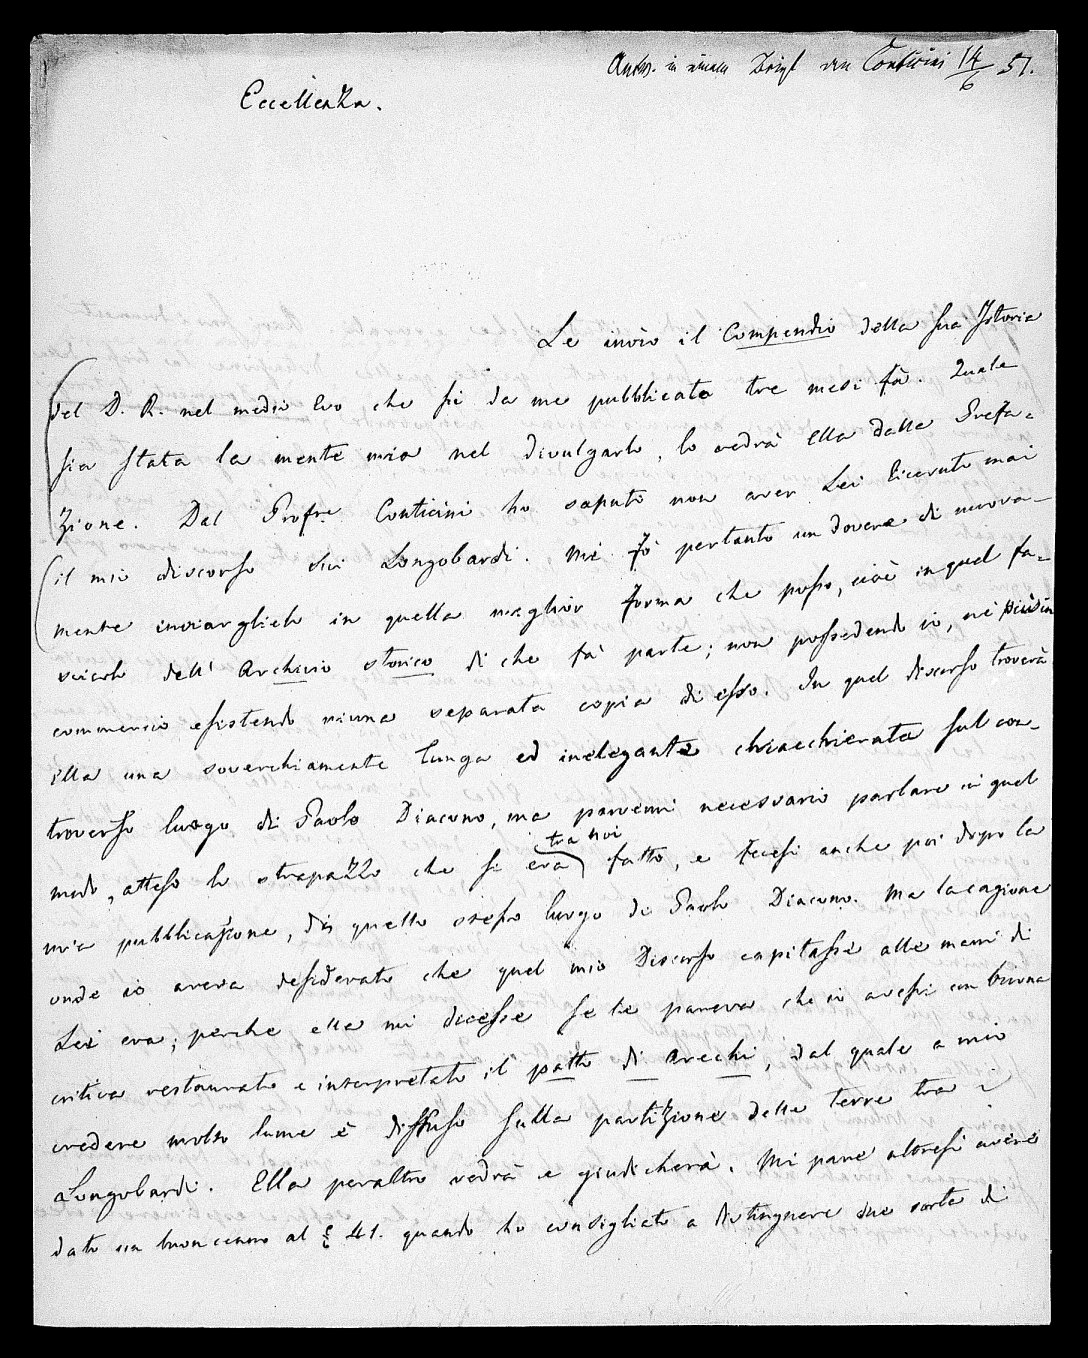 Antw. in einem Brief von Conticini 14/6 51.
Eccellenza.
Le invio il Compendio della sua Istoria
del D. R. nel medio Evo che fu da me pubblicata tre mesi fà. Quale
sia stata la mente mia nel divulgarlo, lo vedrà Ella dalla Prefa=
zione. Dal Profre Conticini ho saputo non aver Lei ricevuto mai
il mio discorso sui Longobardi. Mi fò pertanto un dovere di nuova-
mente inviarglielo in quella maglior forma che posso, cioè in quel fa=
scicolo dell' Archivio storico di che fà parte; non possedendo io, nè più in
commercio esistendo niuna separata copia di esso. In quel discorso troverà
Ella una soverchiamente lunga ed inelegante chiacchierata sul con=
troverso luogo di Paolo Diacono, ma parvemi necessario parlare in quel
modo, atteso lo strapazzo che si era tra noi fatto, e fecesi anche poi dopo la
mia pubblicazione, di quello stesso luogo di Paolo Diacono. Ma la cagione
onde io aveva desiderato che quel mio Discorso capitasse alle mani di
Lei era; perche ella mi dicesse se le pareva che io avessi con buona
critica restaurato e interpretato il patto di Arechi, dal quale a mio
credere molto lume è diffuso sulla partizione delle terre tra i
Longobardi. Ella peraltro vedrà e giudicherà. Mi pare altresì avere
dato un buon cenno al § 41. quando ho consigliato a distinguere due sorte di